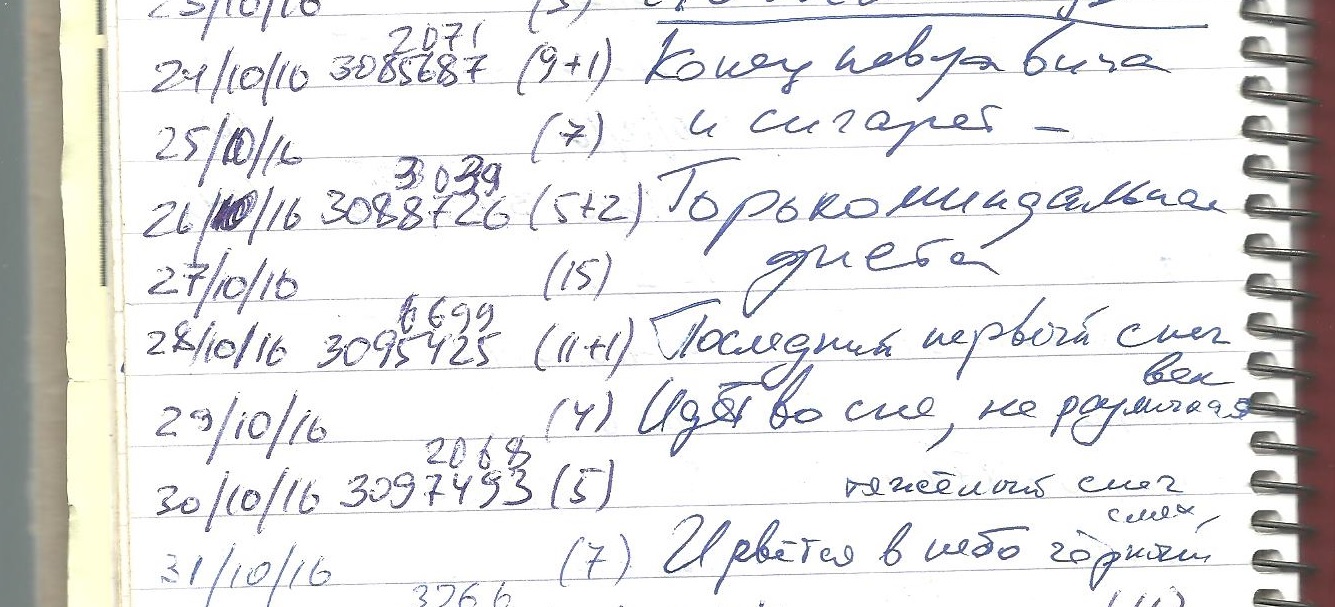 23/10/16 (3)
2071
24/10/16 3085687 (9+1) Конец
25/10/16 (7) и сигарет –
3039
26/10/16 3088726 (5+2) Горькоминдальная
27/10/16 (15) диета
6699
28/10/16 3095425 (11+1) Последний первый снег
век
29/10/16 (4) Идёт во сне, не различая
2068
30/10/16 3097493 (5) тяжёлый снег
смех,
31/10/16 (7) И рвётся в небо горький
3266